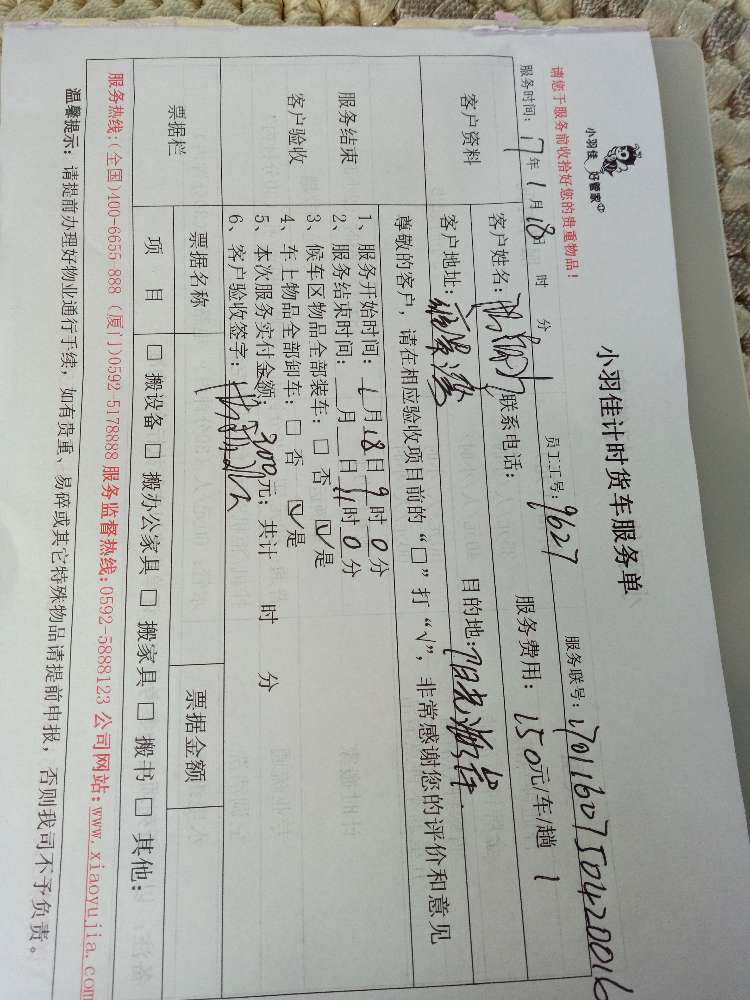 小羽佳 好管家
小羽佳计时货车服务单
请您于服务前收拾好您的贵重物品！
员工工号：9627
服务联号：1701160750420016
服务时间：17年1月18日 时 分
服务费用：150元/车/趟 1
客户资料
客户姓名：
联系电话：
客户地址：
目的地：阳光海岸
尊敬的客户，请在相应验收项目前的“□”打“√”，非常感谢您的评价和意见
服务结束
客户验收
1、服务开始时间：1月18日9时0分
2、服务结束时间： 月 日11时0分
3、候车区物品全部装车：□ 否 ☑是
4、车上物品全部卸车：□ 否 ☑是
5、本次服务实付金额：300元；共计 时 分
6、客户验收签字：
票据栏
票据名称
票据金额
项 目
□ 搬设备 □ 搬办公家具 □ 搬家具 □ 搬书 □ 其他：
服务热线：(全国)400-6655-888 (厦门)0592-5178888 服务监督热线：0592-5888123 公司网站：www.xiaoyujia.com
温馨提示：请提前办理好物业通行手续，如有贵重、易碎或其它特殊物品请提前申报，否则我司不予负责。